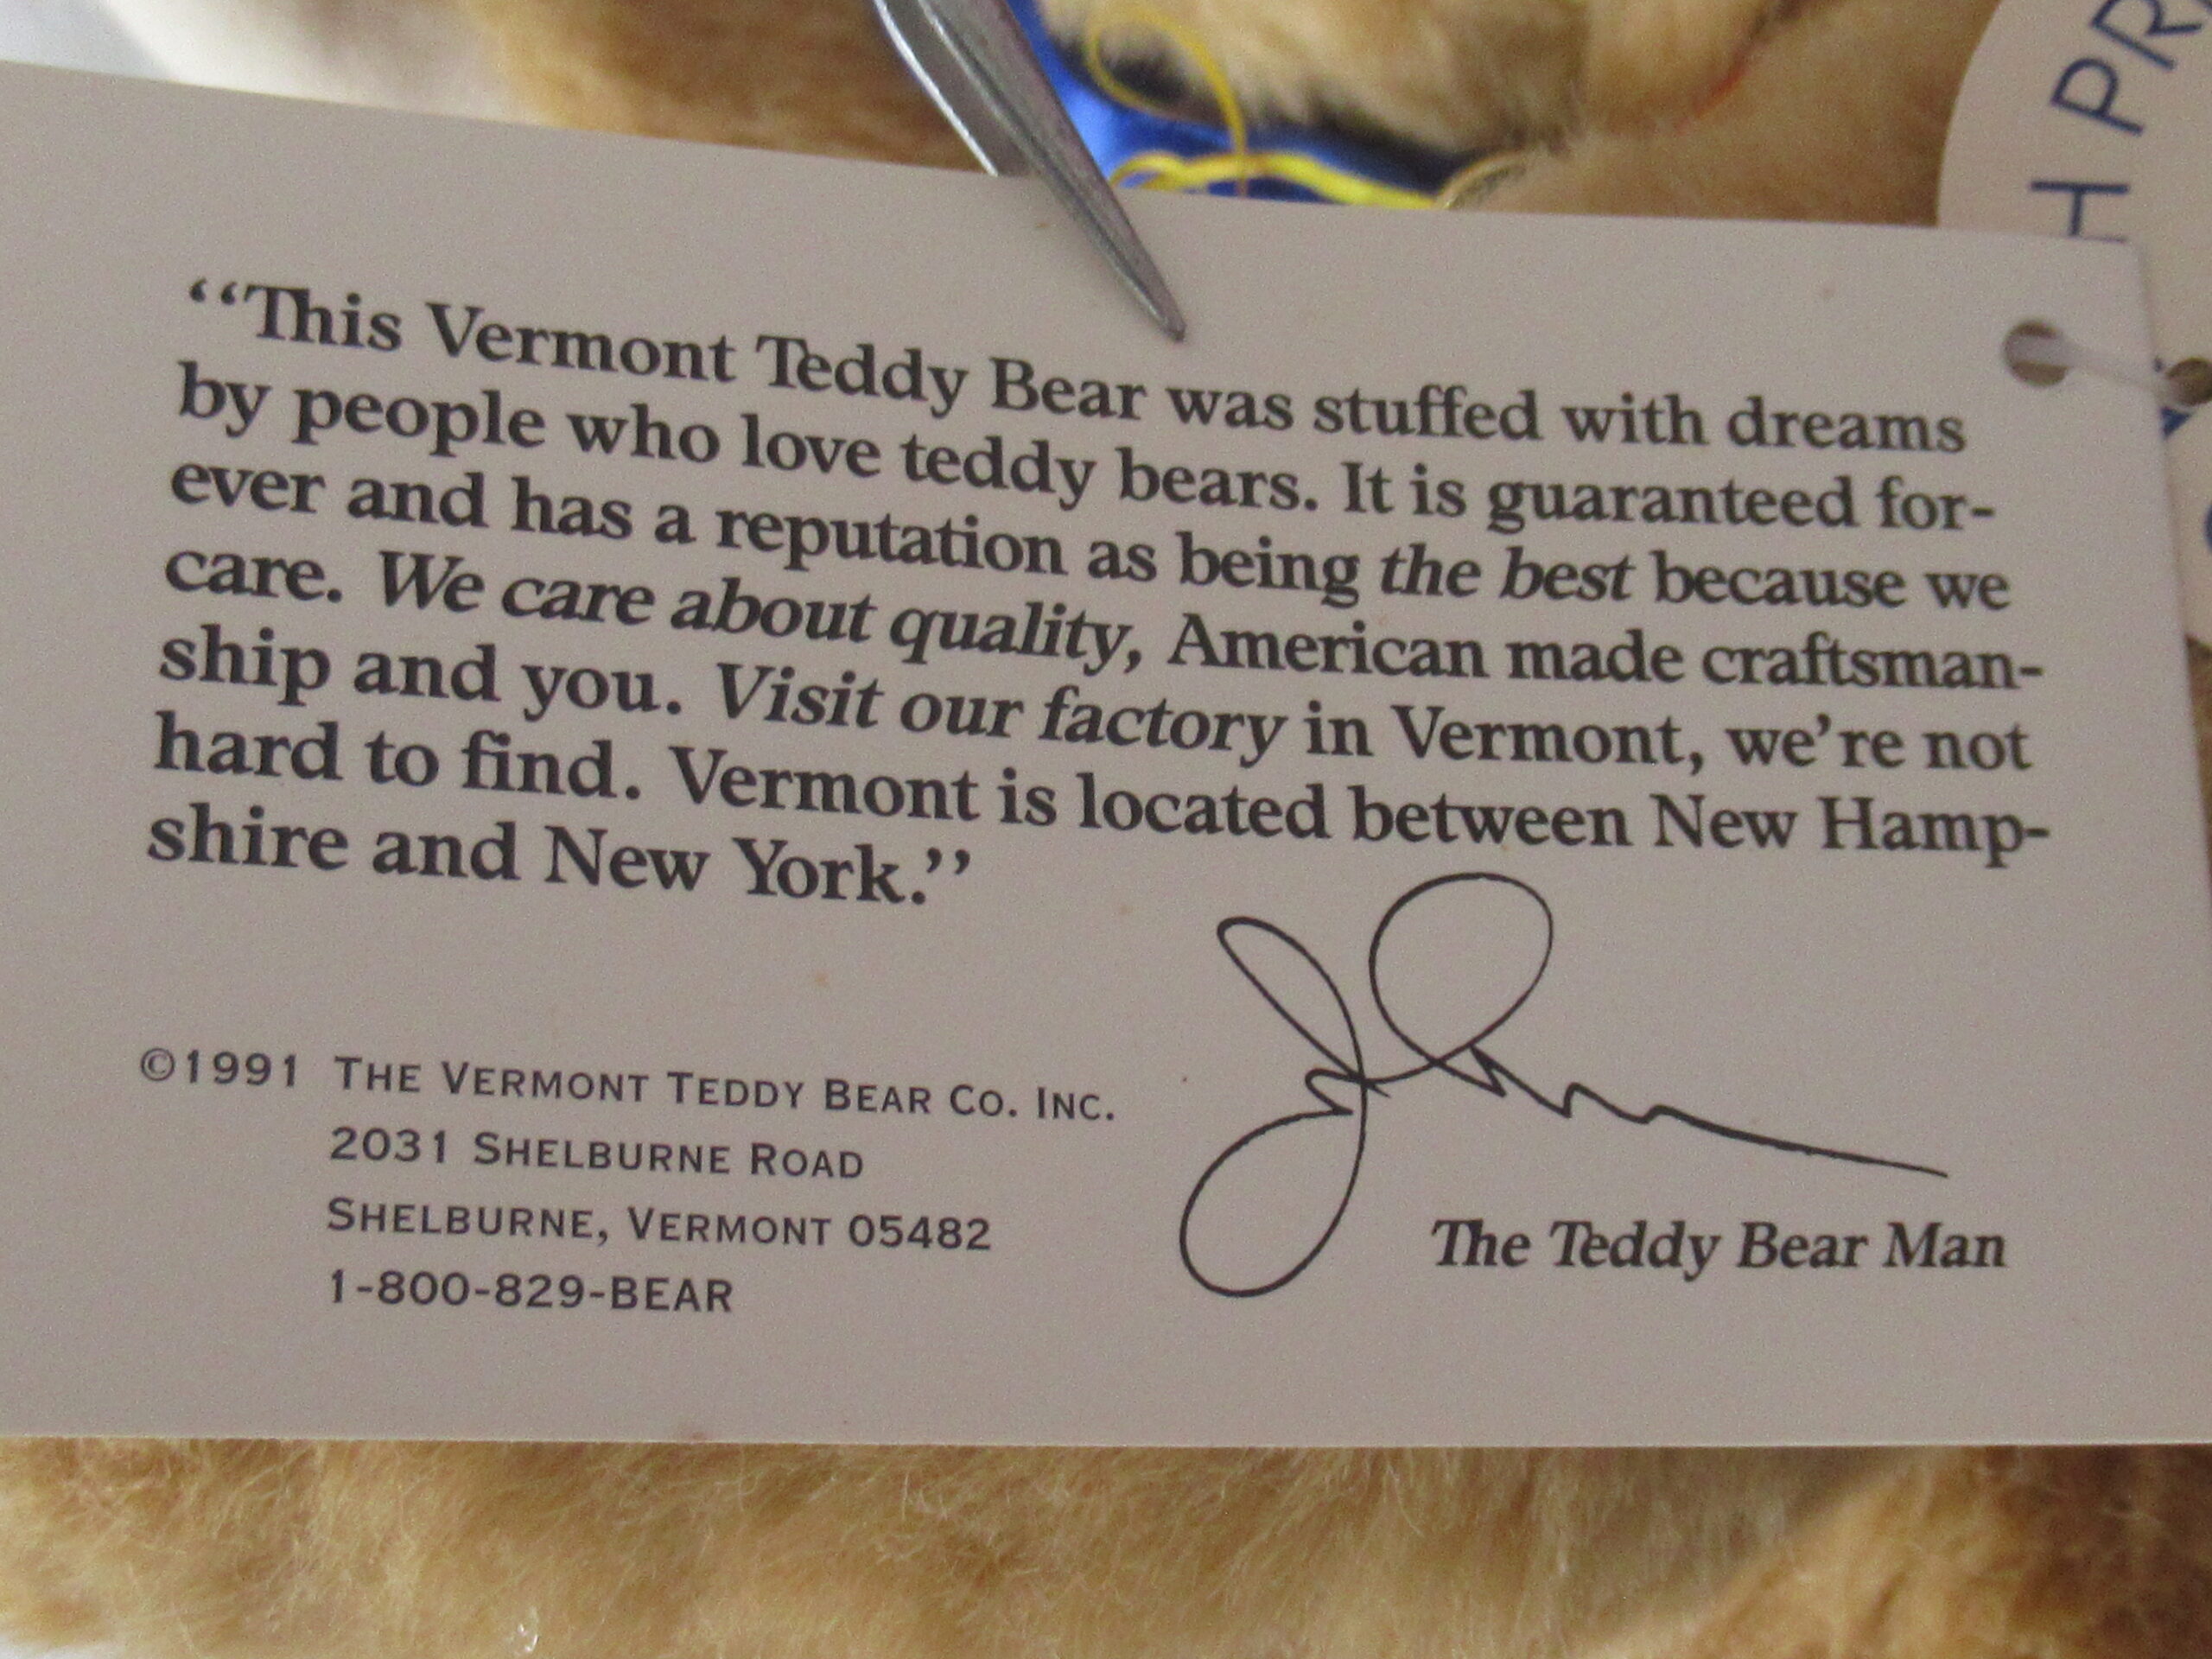 “This Vermont Teddy Bear was stuffed with dreams
by people who love teddy bears. It is guaranteed for-
ever and has a reputation as being the best because we
care. We care about quality, American made craftsman-
ship and you. Visit our factory in Vermont, we’re not
hard to find. Vermont is located between New Hamp-
shire and New York.”
©1991 THE VERMONT TEDDY BEAR CO. INC.
2031 SHELBURNE ROAD
SHELBURNE, VERMONT 05482
1-800-829-BEAR
The Teddy Bear Man
H PR